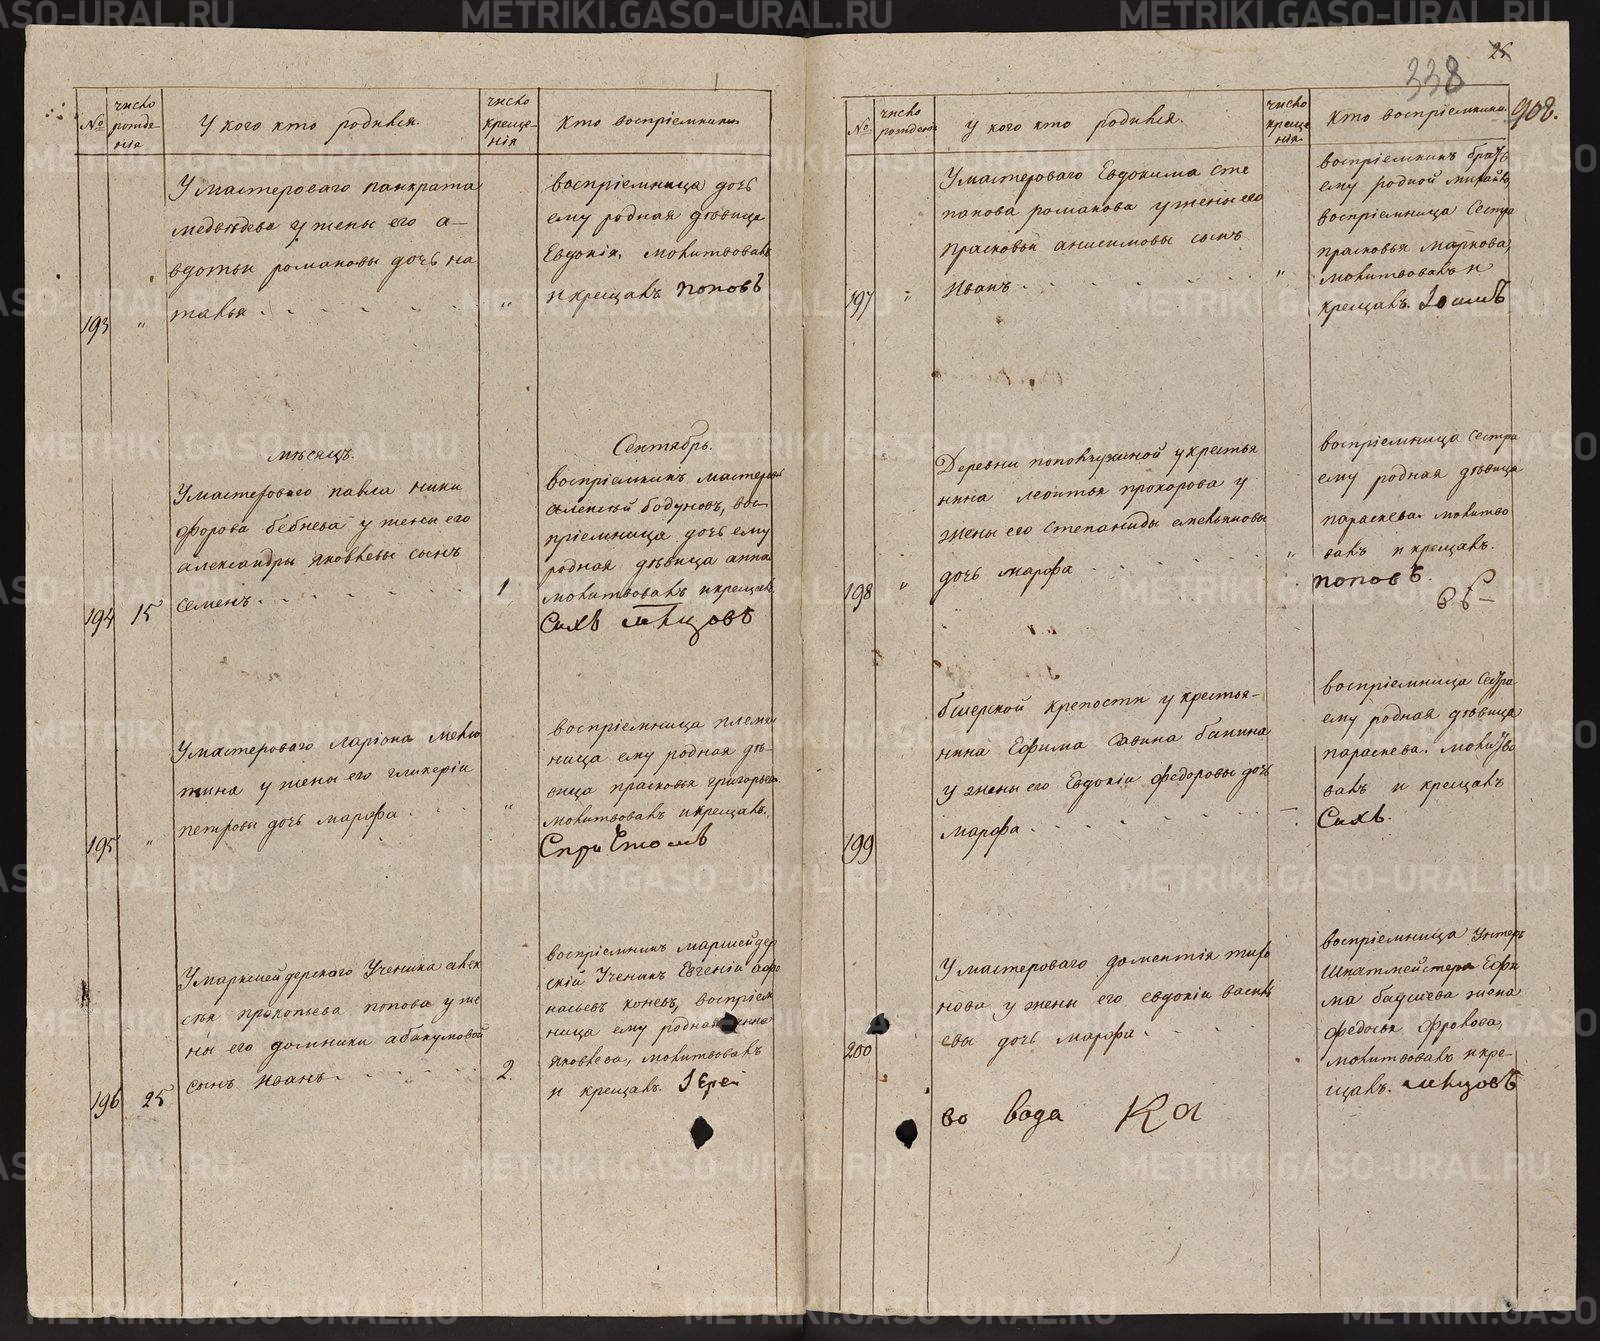 №
число рожденія
У кого кто родился.
число крещенія
Кто воспріемники
193
"
У мастероваго панкрата
медведева у жены его а-
вдотьи романовы дочь на
талья
"
воспріемница дочь
ему родная девица
Евдокія, молитвовалъ
и крещалъ поповъ
месяцъ.
Сентябрь.
194
15
У мастероваго павла ники
форова бебнева у жены его
александры яковлевы сынъ
семенъ
1
воспріемникъ мастеровой
алексей бодуновъ, вос-
пріемница дочь ему
родная девица анна
молитвовалъ и крещалъ
195
"
У мастероваго ларіона
у жены его гликеріи
петровы дочь марфа
"
воспріемница племян
ница ему родная де-
вица прасковья григорьева
молитвовалъ и крещалъ.
196
25
У маркшейдерскаго Ученика алек
сея прокопьева попова у же
ны его домники абакумовой
сынъ иванъ
2.
воспріемникъ маркшейдер
скій Ученикъ Евгеній афо
насьевъ коневъ, воспріем
ница ему родная анна
яковлева, молитвовалъ
и крещалъ. Іерей
338
908.
№
число рожденія
У кого кто родился.
число крещенія
Кто воспріемники.
197
"
У мастероваго Евдокима сте
панова романова у жены его
прасковьи анисимовы сынъ
иванъ
"
воспріемникъ братъ
ему родной михайло,
воспріемница Сестра
прасковья маркова,
молитвовалъ и
крещалъ.
198
"
Деревни у крестья
нина леонтья прохорова у
жены его степаниды емельяновы
дочь марфа
"
воспріемница сестра
ему родная девица
параскева. молитво
валъ и крещалъ.
поповъ.
199
крепости у крестья-
нина Ефима Савина бапина
у жены его Евдокіи федоровы дочь
марфа
воспріемница Сестра
ему родная девица
параскева. молитво
валъ и крещалъ
200
У мастероваго дометія
нова у жены его евдокіи василь
евы дочь марфа
воспріемница Унтеръ
Шихтмейстера Ефи
ма бадьева жена
федосья фролова,
молитвовалъ и кре-
щалъ.
METRIKI.GASO-URAL.RU